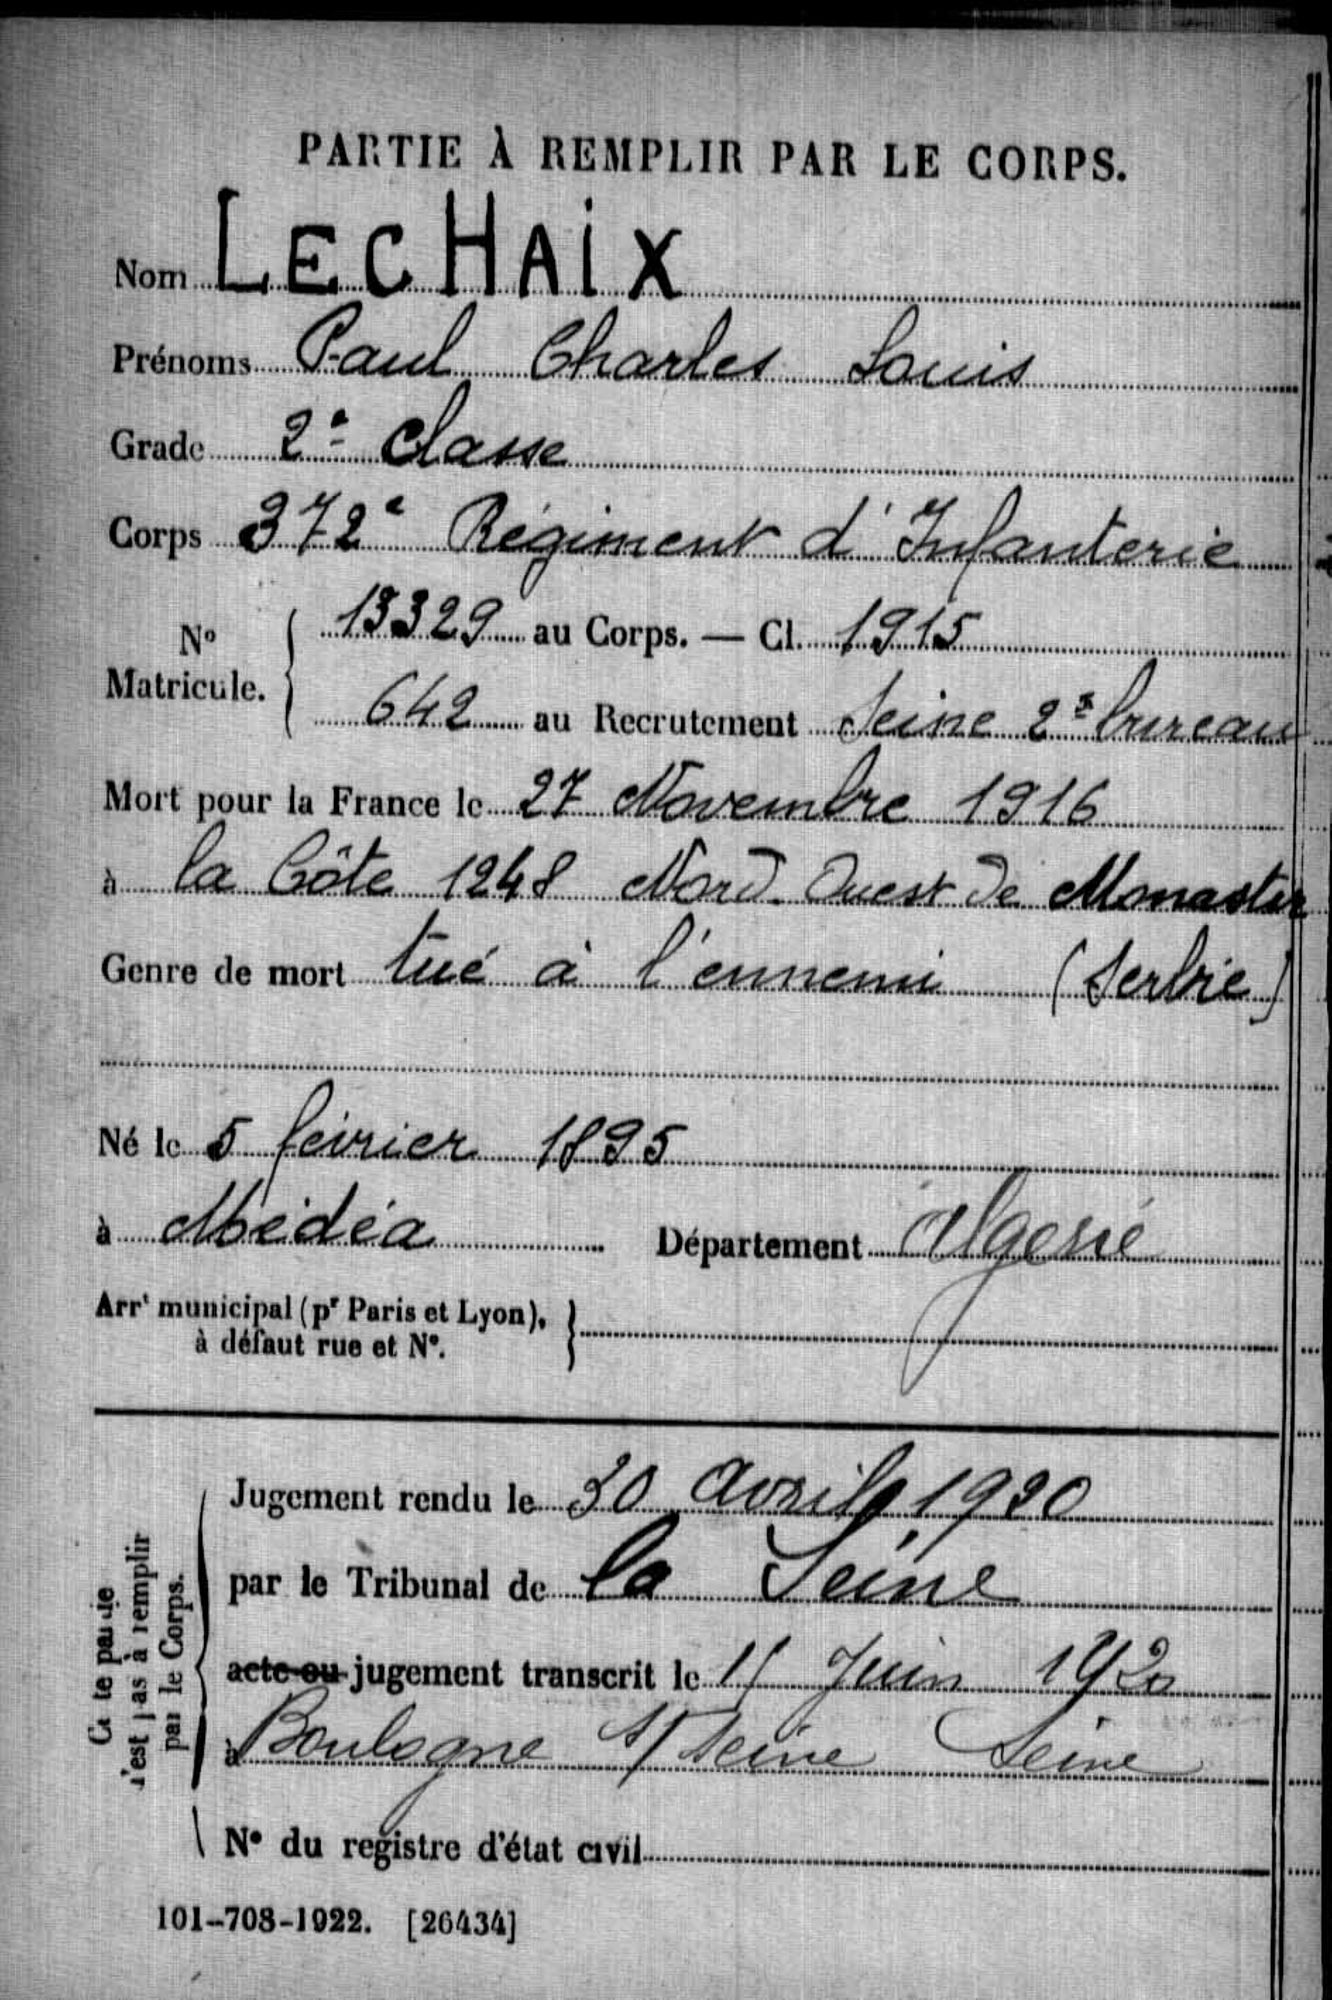 PARTIE À REMPLIR PAR LE CORPS.
Nom LECHAIX
Prénoms Paul Charles Louis
Grade 2e classe
Corps 372e Régiment d'Infanterie
N° Matricule. 13329 au Corps. — Cl. 1915
642 au Recrutement Seine 2e bureau
Mort pour la France le 27 Novembre 1916
à la Côte 1248 Nord-Ouest de Monastir
Genre de mort tué à l'ennemi (Serbie)
Né le 5 février 1895
à Médéa Département Algérie
Arrt municipal (pr Paris et Lyon),
à défaut rue et N°.
Cette partie
n'est pas à remplir
par le Corps.
Jugement rendu le 30 avril 1920
par le Tribunal de la Seine
acte ou jugement transcrit le 11 Juin 1920
à Boulogne s/Seine Seine
N° du registre d'état civil
101-708-1922. [26434]